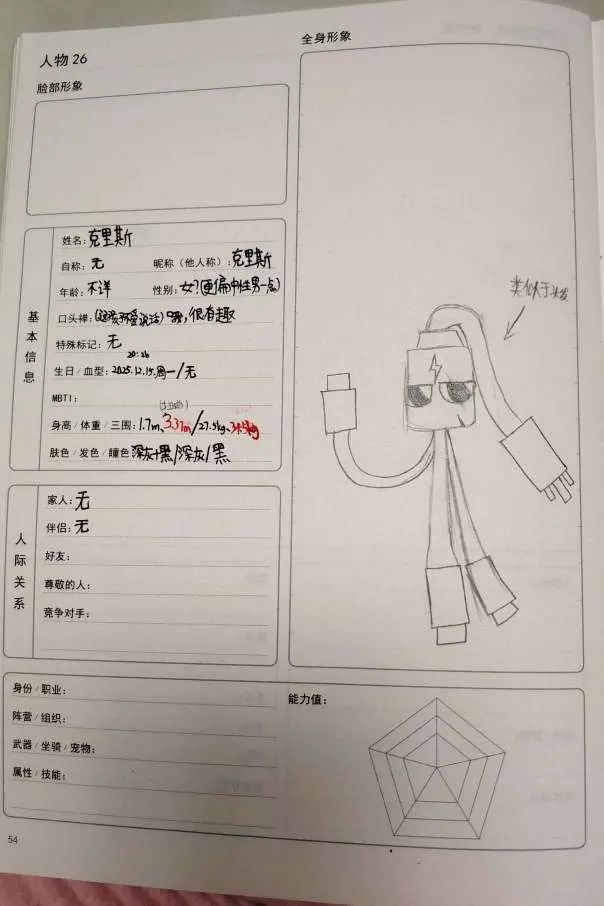 人物 26
脸部形象
全身形象
基本信息
姓名：克里斯
自称：无 昵称（他人称）：克里斯
年龄：不详 性别：女？（更偏中性男一点）
口头禅：（这孩子不爱说话）嗯，很有趣
特殊标记：无
20:26
生日 / 血型：2025.12.15.周一/无
MBTI：
身高 / 体重 / 三围：1.7m、3.37m/27.5kg、34.5kg
肤色 / 发色 / 瞳色 深灰+黑/深灰/黑
类似于头发
人际关系
家人：无
伴侣：无
好友：
尊敬的人：
竞争对手：
身份 / 职业：
阵营 / 组织：
武器 / 坐骑 / 宠物：
属性 / 技能：
能力值：
54